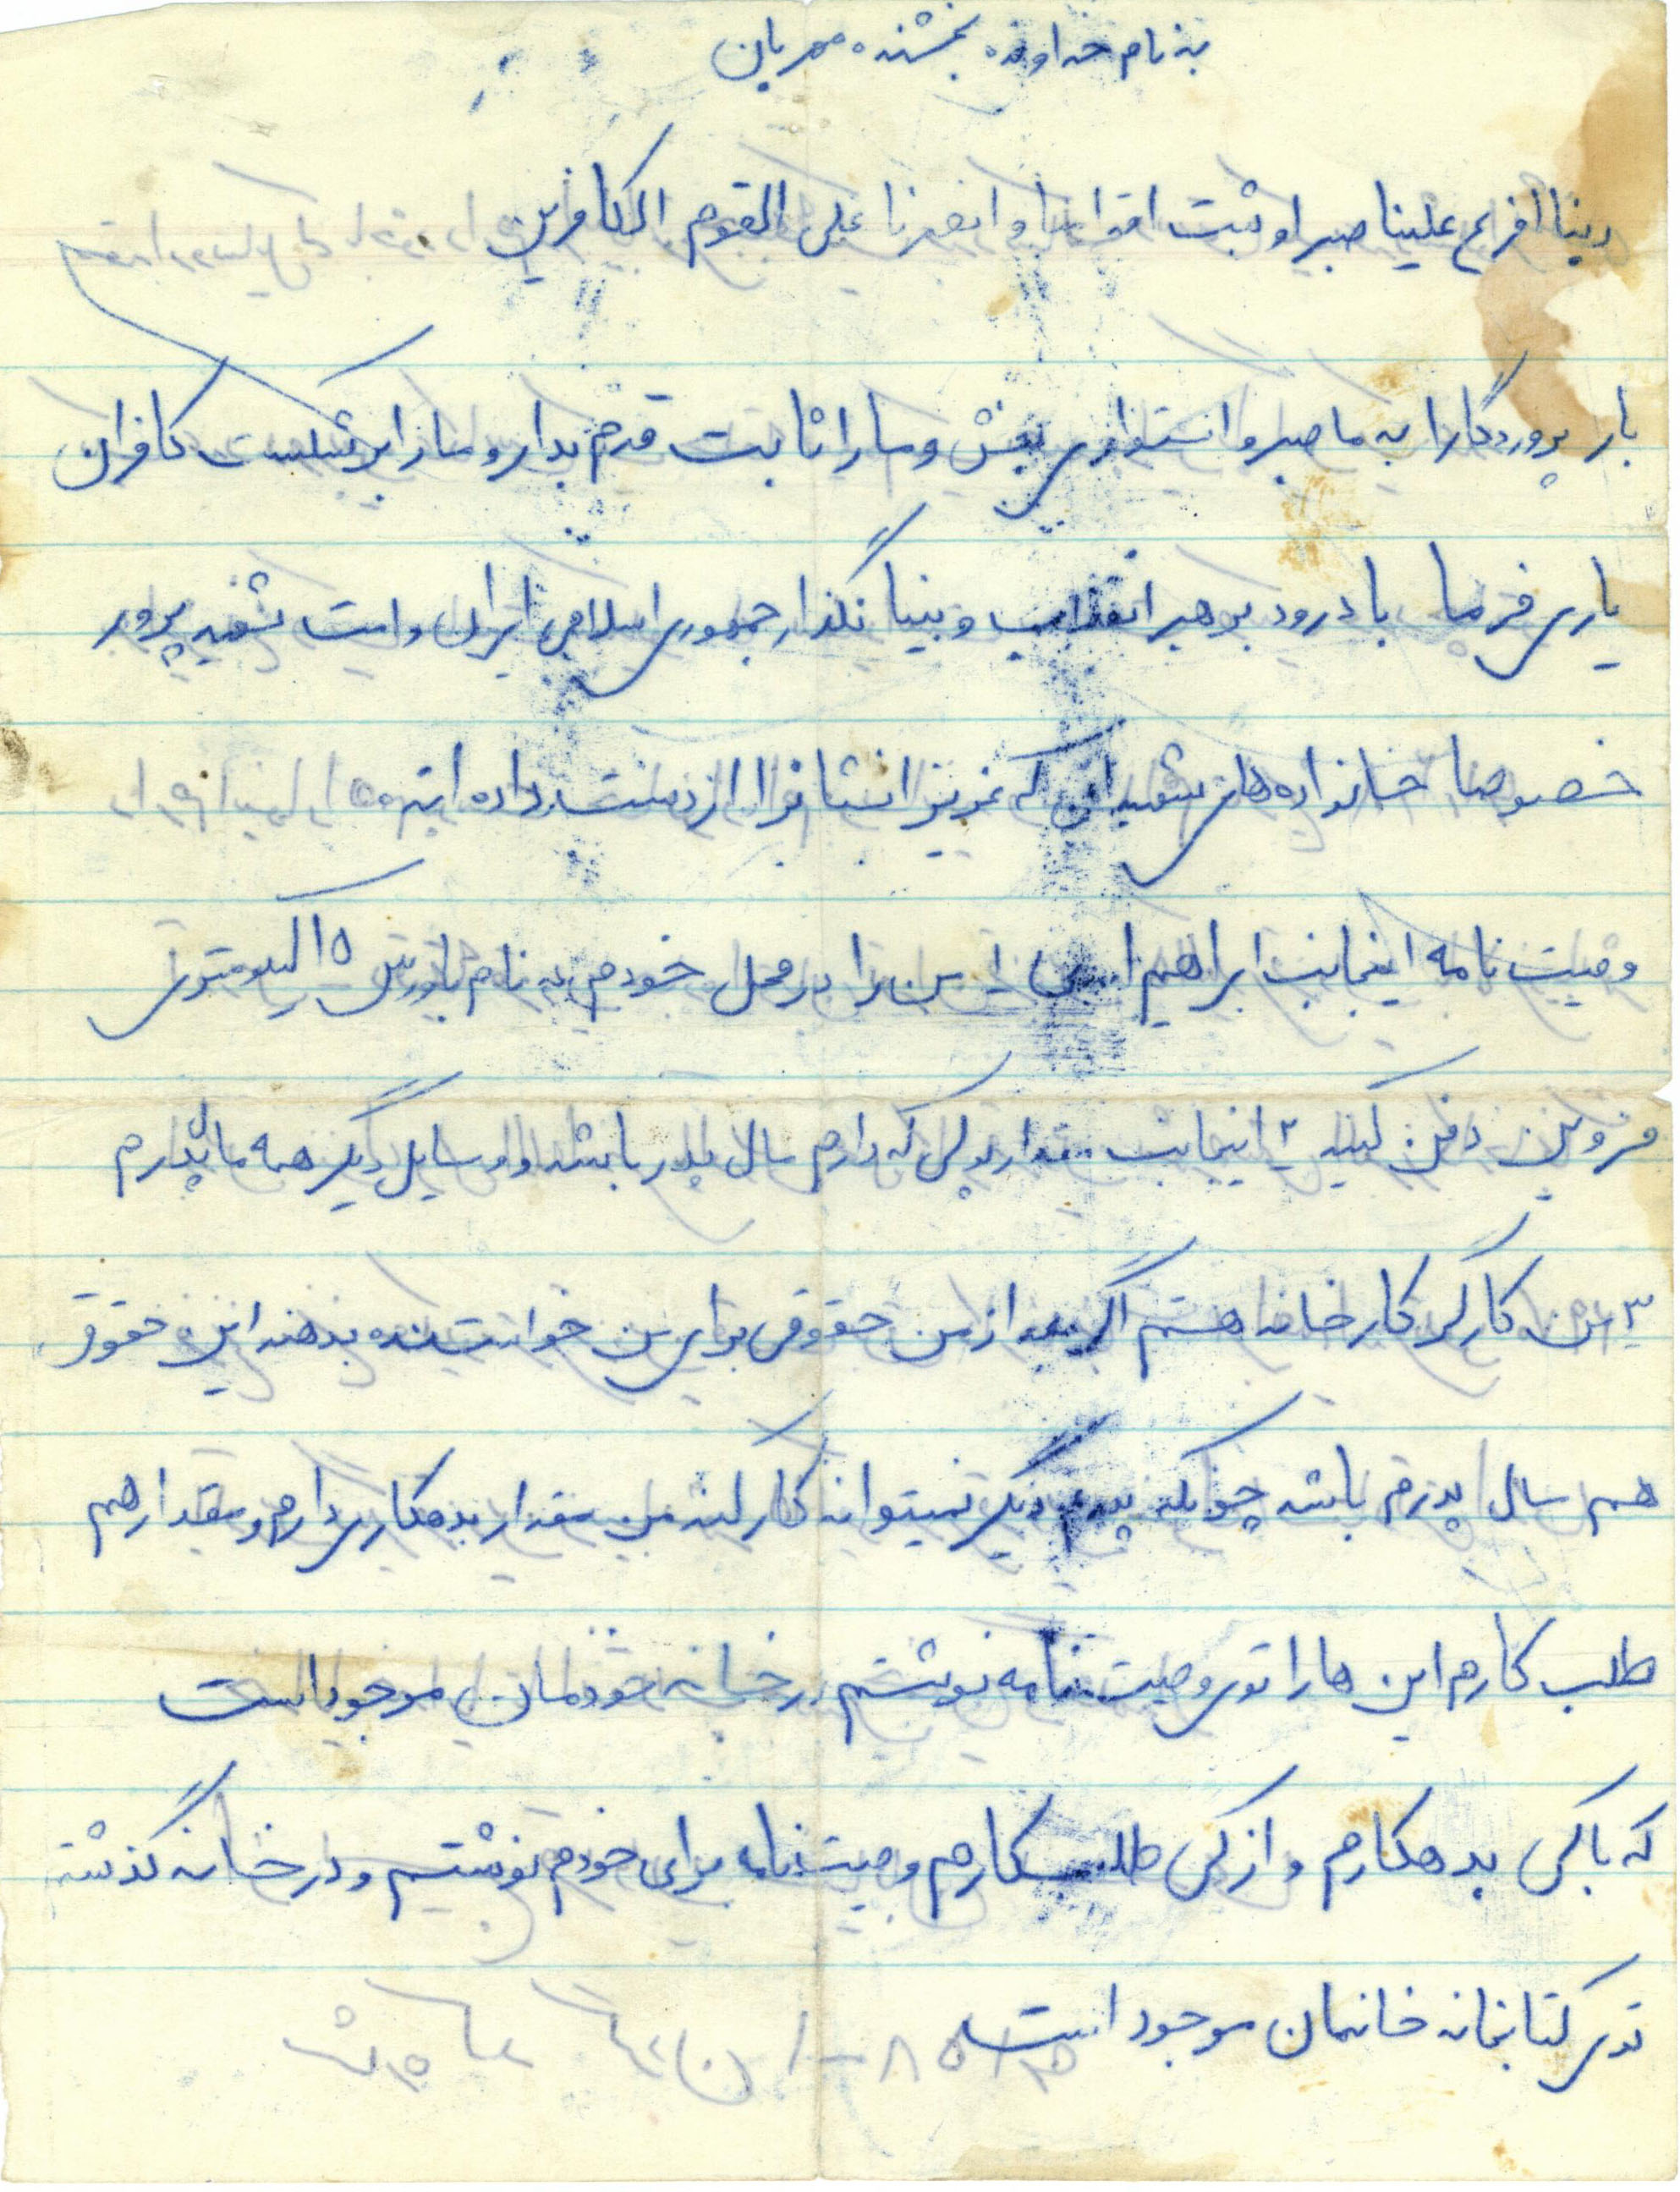 به نام خداونده بخشنده مهربان
ربنا افرغ علینا صبرا و ثبت اقدامنا و انصرنا علی القوم الکافرین
بار پروردگارا به ما صبر و استواری بخش و ما را ثابت قدم بدار و ما را بر شکست کافران
یاری فرما با درود بر رهبر انقلاب و بنیانگذار جمهوری اسلامی ایران و امت شهید پرور
خصوصا خانواده های شهیدانی که عزیزانشانرا از دست داده اند
وصیت نامه اینجانب ابراهیم ۱ من را در محل خودم به نام ۱۵ کیلومتری
قزوین دفن کنید ۲ اینجانب مقدار پولی که دارم مال پدر باشد و وسایل دیگر همه مال پدرم
۳ من کارگر کارخانه هستم اگر بعد از من حقوقی برای من خواستنده بدهند این حقوق
هم مال پدرم باشد چونکه پدرم دیگر نمیتواند کار کند من مقدار بدهکاری دارم و مقدار هم
طلب کارم این ها را توی وصیت نامه نویشتم در خانه خودمان موجود است
که با کی بدهکارم و از کی طلبکارم وصیت نامه برای خودم نوشتم و در خانه گذشته
توی کتابخانه خانمان موجود است